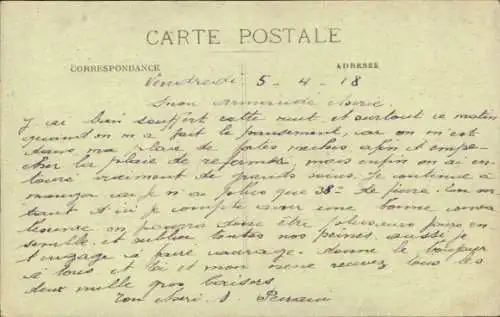 CARTE POSTALE
CORRESPONDANCE ADRESSE
Vendredi 5-4-18
Mon
J'ai bien souffert cette nuit et surtout ce matin
quand on m'a fait le pansement, car on m'est
dans ma plaie de males meches afin d'empe-
cher la plaie de refermer, mais enfin on ai en-
touré vraiment de grands soins. Je continue à
manger car je n'ai plus que 38° de fievre. En sor
tant d'ici je compte avoir une bonne conva
lescence, on pourra donc être plusieurs jours en
semble et oublier toutes nos peines. aussi je
t'engage à faire courage. donne le bonjour
à tous et toi et mon recevez tous les
deux mille gros baisers
Ton